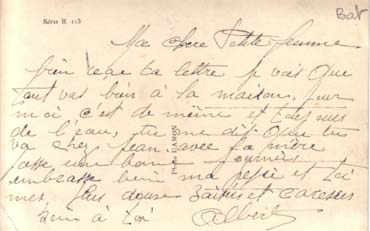 Série R 113
Bat
Ma chere Petite femme
bien reçue ta lettre je vois Que
tout vas bien à la maison, pour
moi c'est de même et toujours
de l'eau, tu me dit Que tu
va chez Jean avec ta mère
passe une bonne journée
embrasse bien ma petite et toi
mes plus douse et caresses
à toi
Albert